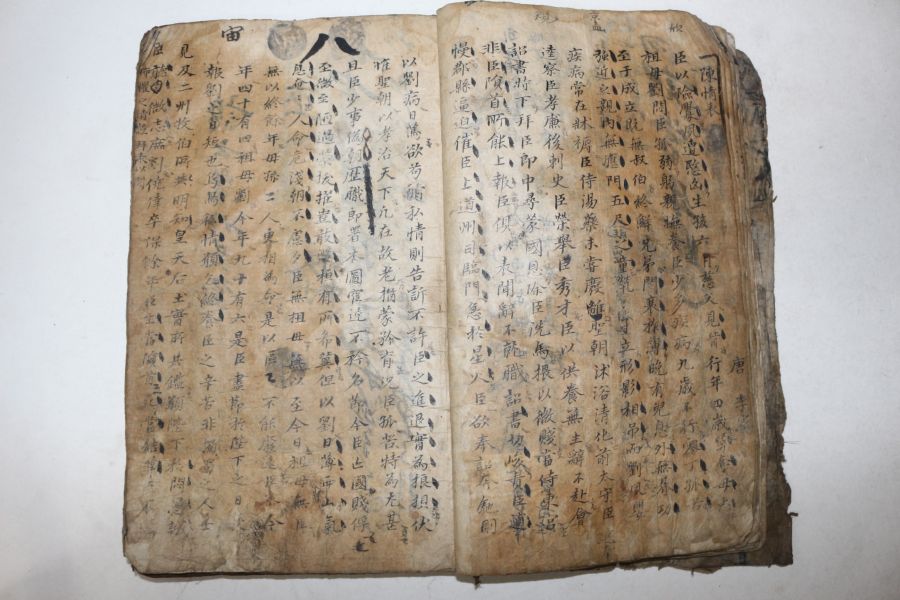 陳情表 唐
臣以險釁夙遭愍凶生孩六月慈父見背行年四歲舅奪母
祖母劉閔臣孤弱躬親撫養臣少多疾病九歲不行零丁孤苦
至于成立旣無叔伯終鮮兄弟門衰祚薄晩有兒息外無朞功
强近之親內無應門五尺之童煢煢孑立形影相吊而劉夙嬰
疾病常在牀褥臣侍湯藥未嘗廢離聖朝沐浴清化前太守臣
逵察臣孝廉後刺史臣榮擧臣秀才臣以供養無主辭不赴會
詔書特下拜臣郎中尋蒙國恩除臣洗馬猥以微賤當侍東宮
非臣隕首所能上報臣俱以表聞辭不就職詔書切峻責臣逋
慢郡縣逼迫催臣上道州司臨門急於星火臣欲奉詔奔馳則
八
宙
以劉病日篤欲苟循私情則告訴不許臣之進退實為狼狽伏
惟聖朝以孝治天下凡在故老猶蒙矜育況臣孤苦特為尤甚
且臣少事僞朝歷職郎署本圖宦達不矜名節今臣亡國賤俘
至微至陋過蒙拔擢豈敢盤桓有所希冀但以劉日薄西山氣
息奄奄人命危淺朝不慮夕臣無祖母無以至今日祖母無臣
無以終餘年母孫二人更相為命是以區區不能廢遠臣今
年四十有四祖母劉今年九十有六是臣盡節於陛下之日長
報劉之日短也烏鳥私情願乞終養臣之辛苦非獨蜀之人士
見及二州牧伯所共明知皇天后土實所共鑑願陛下矜憫愚誠
聽臣微志庶劉僥倖卒保餘年臣生當隕首死當結草